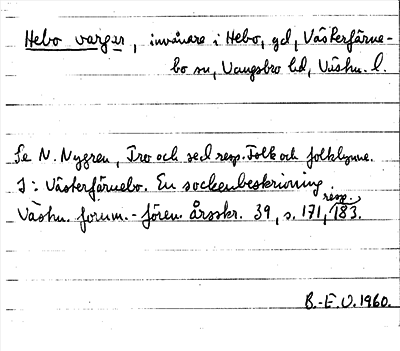 Hebo vargar, invånare i Hebo, gd, Västerfärne-
bo sn, Vangsbro hd, Västm. l.
Se N. Nygren, Tro och sed resp. Folk och folklynne.
I: Västerfärnebo. En sockenbeskrivning.
Västm. fornm.-fören. årsskr. 39, s. 171, resp. 183.
B.-E. O. 1960.